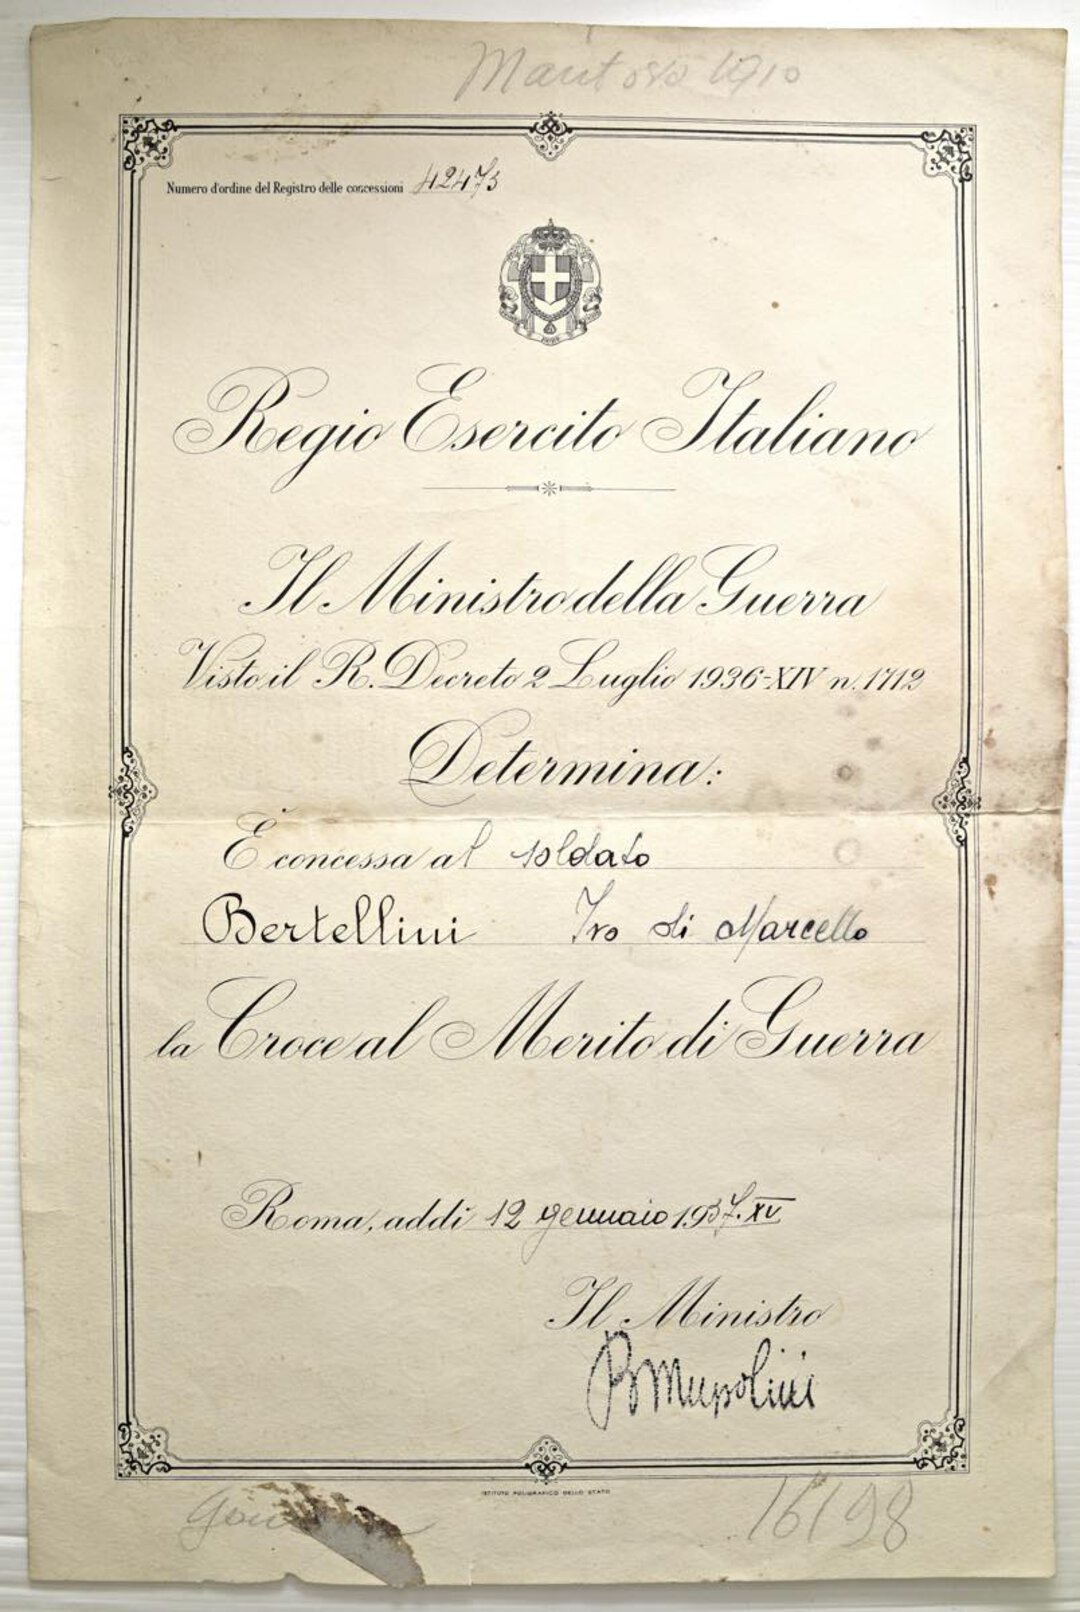 Mantova 1910
Numero d'ordine del Registro delle concessioni 42473
Regio Esercito Italiano
Il Ministro della Guerra
Visto il R. Decreto 2 Luglio 1936-XIV n. 1712
Determina:
È concessa al soldato
Bertellini Ivo di Marcello
la Croce al Merito di Guerra
Roma, addì 12 gennaio 1937. XV
Il Ministro
B Mussolini
ISTITUTO POLIGRAFICO DELLO STATO
16198